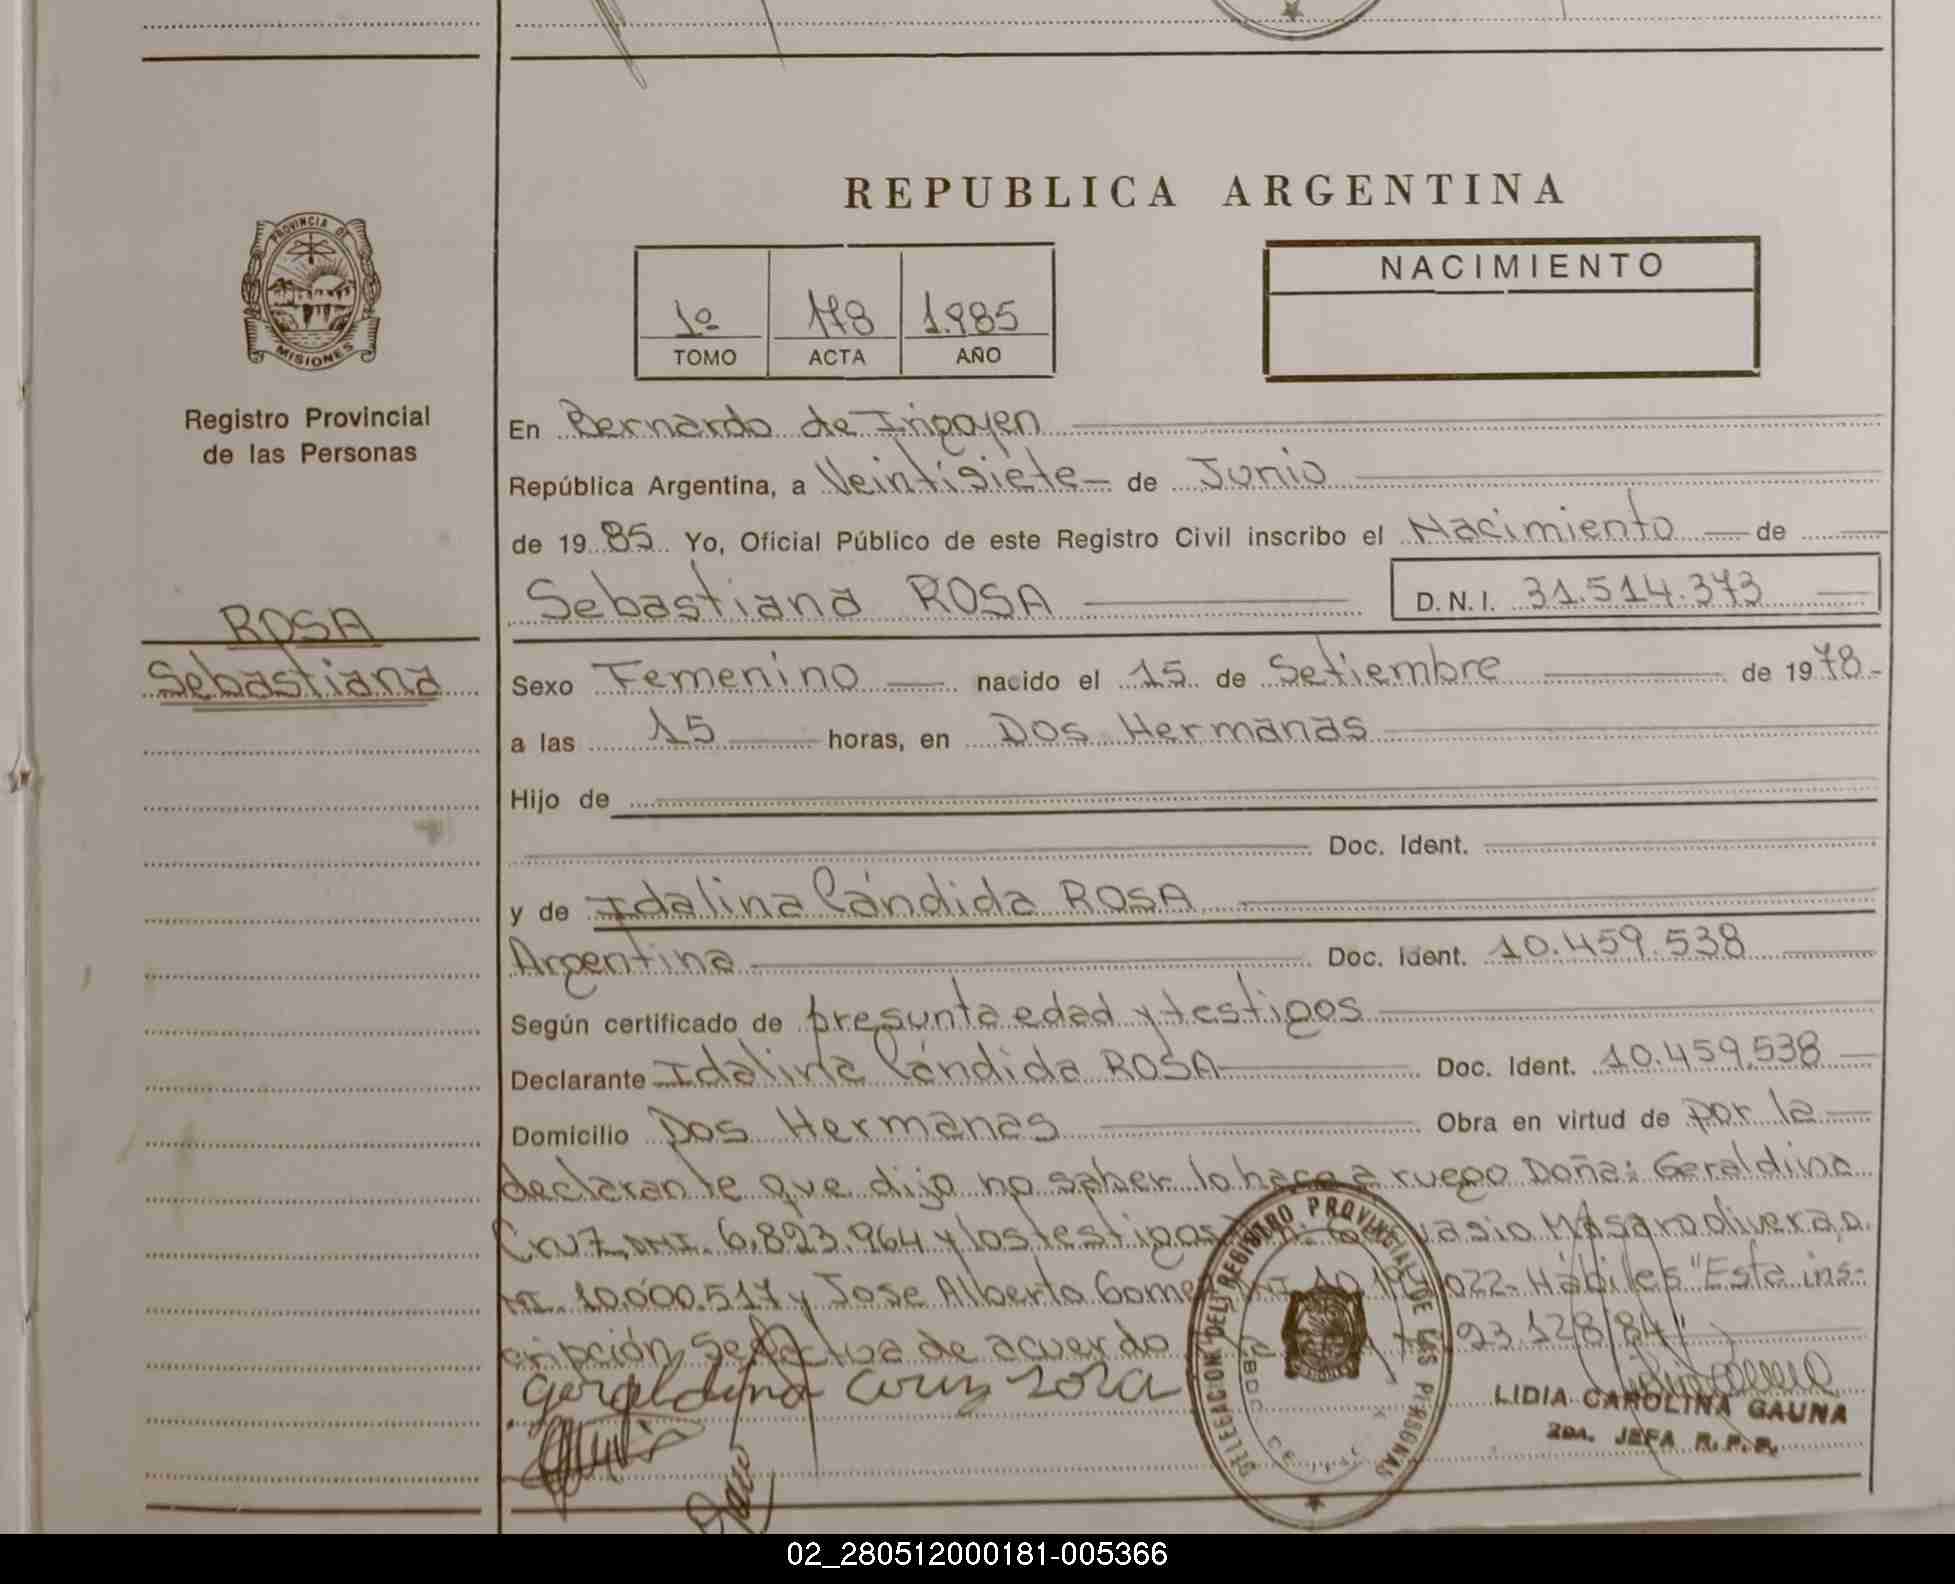 REPUBLICA ARGENTINA
PROVINCIA DE
MISIONES
Registro Provincial
de las Personas
1º 178 1.985
TOMO ACTA AÑO
NACIMIENTO
En Bernardo de Irigoyen
República Argentina, a Veintisiete de Junio
de 1985 Yo, Oficial Público de este Registro Civil inscribo el Nacimiento de
Sebastiana ROSA D.N.I. 31.514.373
ROSA
Sebastiana
Sexo Femenino nacido el 15 de Setiembre de 1978
a las 15 horas, en Dos Hermanas
Hijo de
Doc. Ident.
y de Idalina Cándida ROSA
Argentina Doc. Ident. 10.459.538
Según certificado de presunta edad y testigos
Declarante Idalina Cándida ROSA Doc. Ident. 10.459.538
Domicilio Dos Hermanas Obra en virtud de por la
declarante que dijo no saber lo hace a ruego Doña: Geraldina
Cruz, DNI. 6.823.964 y los testigos
NI. 10.000.517 y Jose Alberto Gome 022- Hábiles "Esta ins-
cripción se de acuerdo 23.128/84"
Geraldina Cruz
DELEGACION DEL REGISTRO PROVINCIAL DE LAS PERSONAS
LIDIA CAROLINA GAUNA
2DA. JEFA R.P.P.
02_280512000181-005366